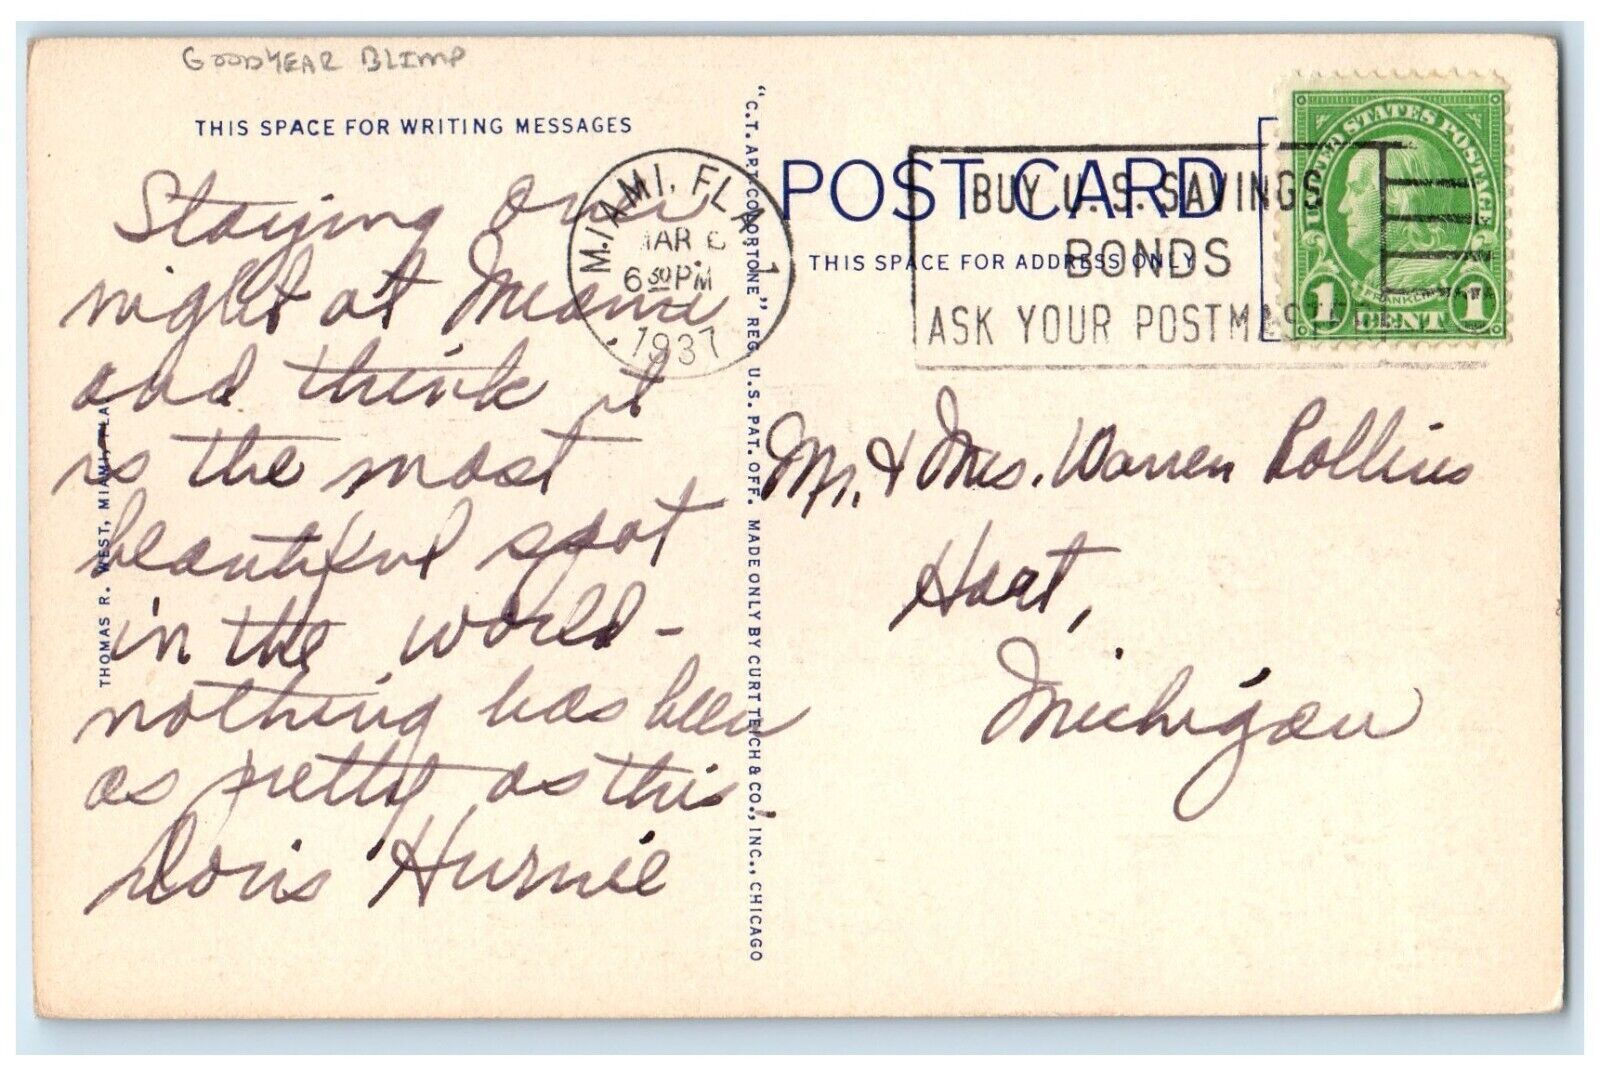 GOODYEAR BLIMP
THIS SPACE FOR WRITING MESSAGES
Staying over
night at Miami
and think it
is the most
beautiful spot
in the world -
nothing has been
as pretty as this.
Doris Hurnie
THOMAS R. WEST, MIAMI, FLA
MIAMI, FLA. 1
MAR 6
6 30 PM
1937
"C.T. ART-COLORTONE" REG. U.S. PAT. OFF. MADE ONLY BY CURT TEICH & CO., INC., CHICAGO
POST CARD
THIS SPACE FOR ADDRESS ONLY
BUY U.S. SAVINGS
BONDS
ASK YOUR POSTMASTER
UNITED STATES POSTAGE
FRANKLIN
1 CENT 1
Mr. & Mrs. Warren Rollins
Hart,
Michigan